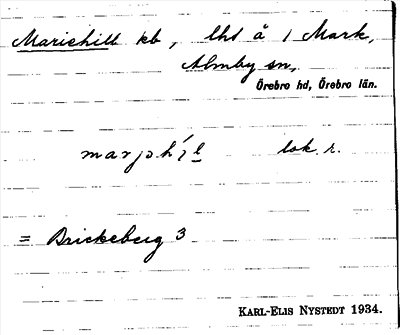 Mariehill kb, lht å 1 Mark,
Almby sn,
Örebro hd, Örebro län.
lok. r.
= Brickeberg 3
KARL-ELIS NYSTEDT 1934.